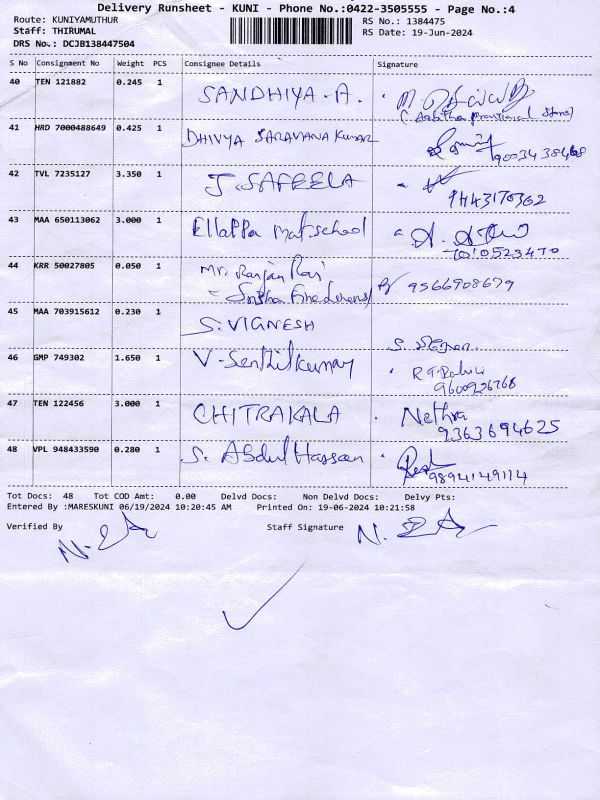 Delivery Runsheet - KUNI - Phone No.:0422-3505555 - Page No.:4
Route: KUNIYAMUTHUR
RS No.: 1384475
Staff: THIRUMAL
RS Date: 19-Jun-2024
DRS No.: DCJB138447504
S No Consignment No Weight PCS Consignee Details Signature
40 TEN 121882 0.245 1 SANDHIYA-A.
41 HRD 7000488649 0.425 1 DHIVYA SARAVANA KUMAR
42 TVL 7235127 3.350 1 J.SAFEELA
43 MAA 650113062 3.000 1 Ellappa Mat school
44 KRR 50027805 0.050 1 Mr. Ranjan Raj 9566908679
45 MAA 703915612 0.230 1 S.VIGNESH
46 GMP 749302 1.650 1 V-Senthilkumar
9600926768
47 TEN 122456 3.000 1 CHITRAKALA Nethra
9363694625
48 VPL 948433590 0.280 1 S. Abdul Hassan
9894149114
Tot Docs: 48 Tot COD Amt: 0.00 Delvd Docs: Non Delvd Docs: Delvy Pts:
Entered By :MARESKUNI 06/19/2024 10:20:45 AM Printed On: 19-06-2024 10:21:58
Verified By Staff Signature